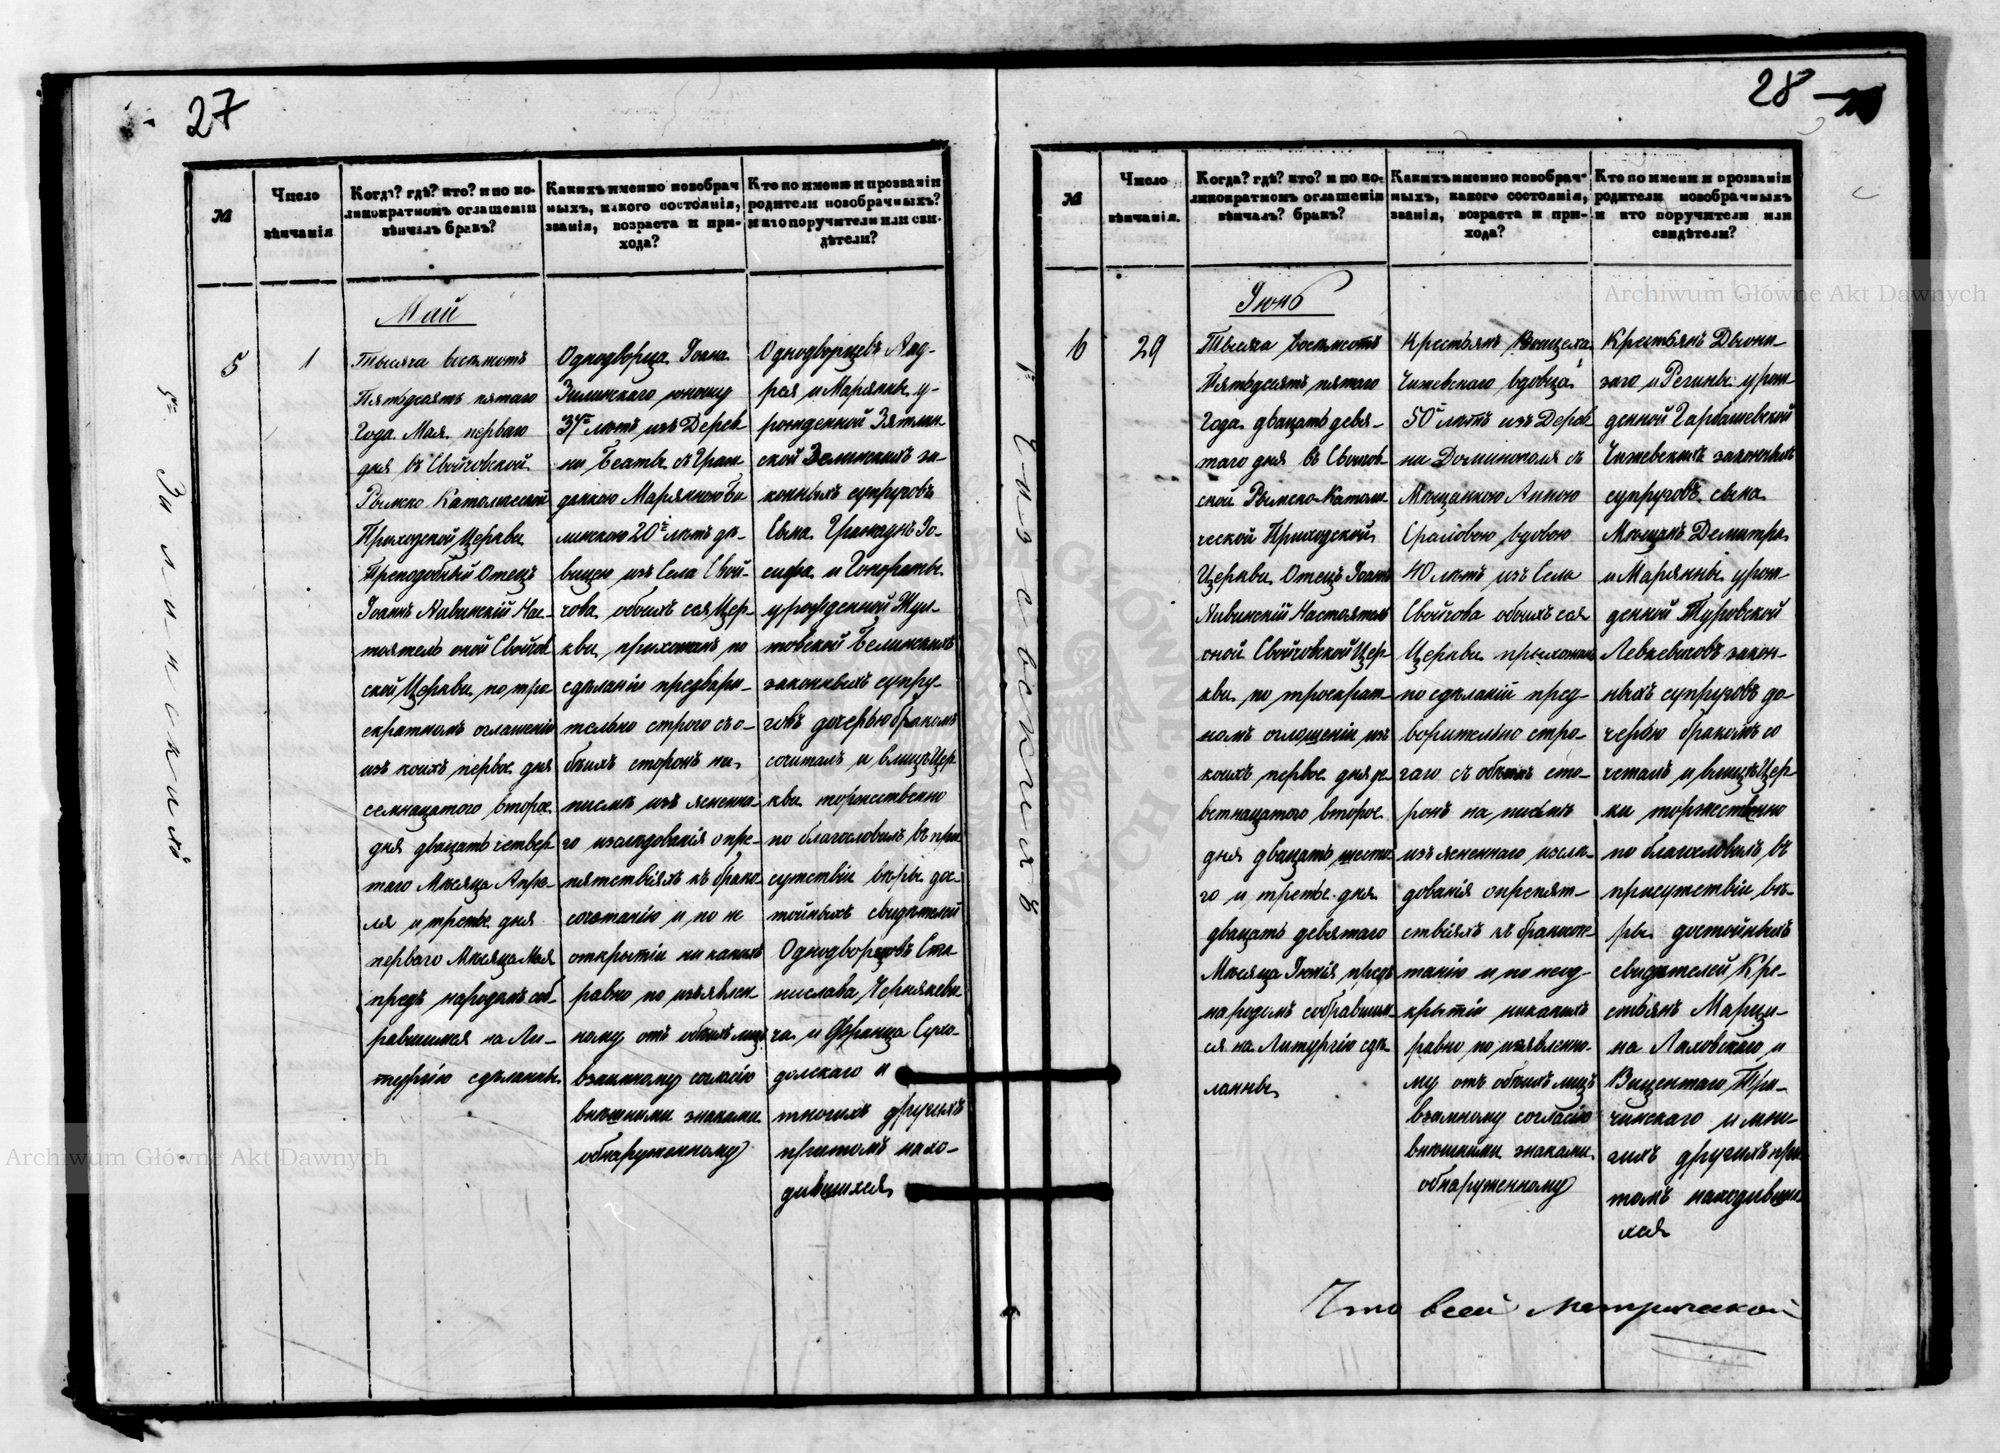 27
№
Число
вѣнчанія
Когда? гдѣ? кто? и по ко-
ликократномъ оглашеніи
вѣнчалъ бракъ?
Какихъ именно новобрач
ныхъ, какого состоянія,
званія, возраста и при-
хода?
Кто по имени и прозванію
родители новобрачныхъ?
и кто поручители или сви-
дѣтели?
5й
Зилинскихъ
Май
5
1
Тысяча восемсотъ
Пятьдесятъ пятаго
Года Мая перваго
дня въ Свойчовской
Римско Католической
Приходской Церкви
Преподобный Отецъ
Іоаннъ Ливинскій Нас-
тоятель оной Свойчов
ской Церкви, по трое
кратномъ оглашеніи
изъ коихъ первое дня
семнацатого второе
дня двацать четвер-
таго Мѣсяца Апрѣ-
ля и третье дня
перваго Мѣсяца Мая
предъ народомъ соб-
равшимся на Ли-
тургію сдѣланны
Однодворца Іоана
Зилинскаго юношу
37 лѣтъ изъ Дерев
ни Беаты съ Граж
данкою Марянною Бѣ
линскою 20 лѣтъ дѣ-
вицею изъ Села Свой-
чова обоихъ сея Цер-
кви прихожанъ по
сдѣланіи предвари-
тельно строго съ о-
боихъ сторонъ на
письмѣ изъясненна-
го изслѣдованія опре-
пятствіяхъ къ брако
сочетанію и по не
открытіи никакихъ
равно по изъявлен
ному отъ обоихъ лицъ
взаимному согласію
внѣшними знаками
обнаруженному
Однодворцевъ Анд-
рея и Марянны у-
рожденной Зятин-
ской Зелинскихъ за-
конныхъ супруговъ
Сына Гражданъ Іо-
сифа и Гонораты
урожденной Жул-
товской Белинскихъ
законныхъ супру-
говъ дочерью бракомъ
сочеталъ и влицѣ Цер
кви торжественно
поблагословилъ въ при
сутствіи вѣры дос-
тойныхъ свидѣтелей
Однодворцовъ Ста
нислава Черняхеви
ча и Франца Сухо-
дольскаго и
многихъ другихъ
притомъ нахо-
дившихся
28
№
Число
вѣнчанія.
Когда? гдѣ? кто? и по ко-
ликократномъ оглашеніи
вѣнчалъ? бракъ?
Какихъ именно новобрач-
ныхъ, какого состоянія,
званія, возраста и при-
хода?
Кто по имени и прозванію
родители новобрачныхъ
и кто поручители или
свидѣтели?
Чижевскихъ
Іюнь
6
29
Тысяча восемсотъ
Пятьдесятъ пятаго
Года двацать девя-
таго дня въ Свойчов
ской Римско-Католи
ческой Приходской
Церкви Отецъ Іоаннъ
Ливинскій Настоятель
оной Свойчовской Цер
кви, по троекрат-
номъ оглошеніи изъ
коихъ первое дня де
ветнацатого второе
дня двацать шеста
го и третье дня
двацать девятаго
Мѣсяца Іюнія предъ
народомъ собравшим-
ся на Литургію сдѣ-
ланны
Крестьянъ Воицеха
Чижевскаго вдовца
50 лѣтъ изъ Дерев
ни Доминополя съ
Мѣщанкою Анною
вдовою
40 лѣтъ изъ Села
Свойчова обоихъ сея
Церкви прихожанъ
по сдѣланіи пред-
ворительно стро-
гаго съ обоихъ сто-
ронъ на письмѣ
изъясненнаго изслѣ-
дованія опрепят-
ствіяхъ къ бракосоче-
танію и по неод-
крытіи никакихъ
равно по изявленно-
му отъ обоихъ лицъ
взаимному согласію
внѣшними знаками
обнаруженному
Крестьянъ Діони-
заго и Регины урож
денной Гарбашевской
Чижевскихъ законныхъ
супруговъ сына
Мѣщанъ Демитра
и Марянны урож-
денной Туровской
Левкевичовъ закон-
ныхъ супруговъ до-
черью бракомъ со
четалъ и влицѣ Цер-
кви торжественно
поблагословилъ въ
присутствіи вѣ-
ры достойныхъ
свидѣтелей Кре-
стьянъ Марци-
на Лаховскаго и
Вицентаго Тро-
чинскаго и мно-
гихъ другихъ при
томъ находивши-
хся
Что всей Метрической
Archiwum Główne Akt Dawnych
Archiwum Główne Akt Dawnych